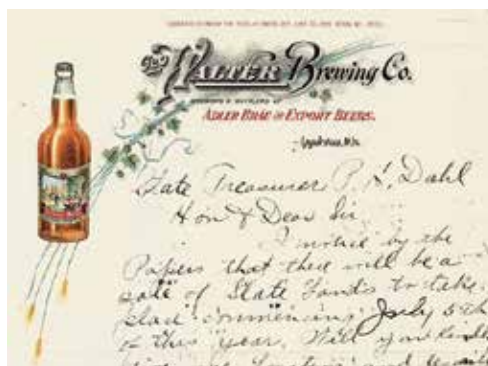 Geo Walter Brewing Co.
BREWERS & BOTTLERS OF
ADLER BRAU AND EXPORT BEERS.
Appleton, Wis.
State Treasurer A. H. Dahl
Hon & Dear Sir,
I notice by the
Papers that there will be a
sale of State Lands to take
place commencing July 5th
of this year. Will you kindly